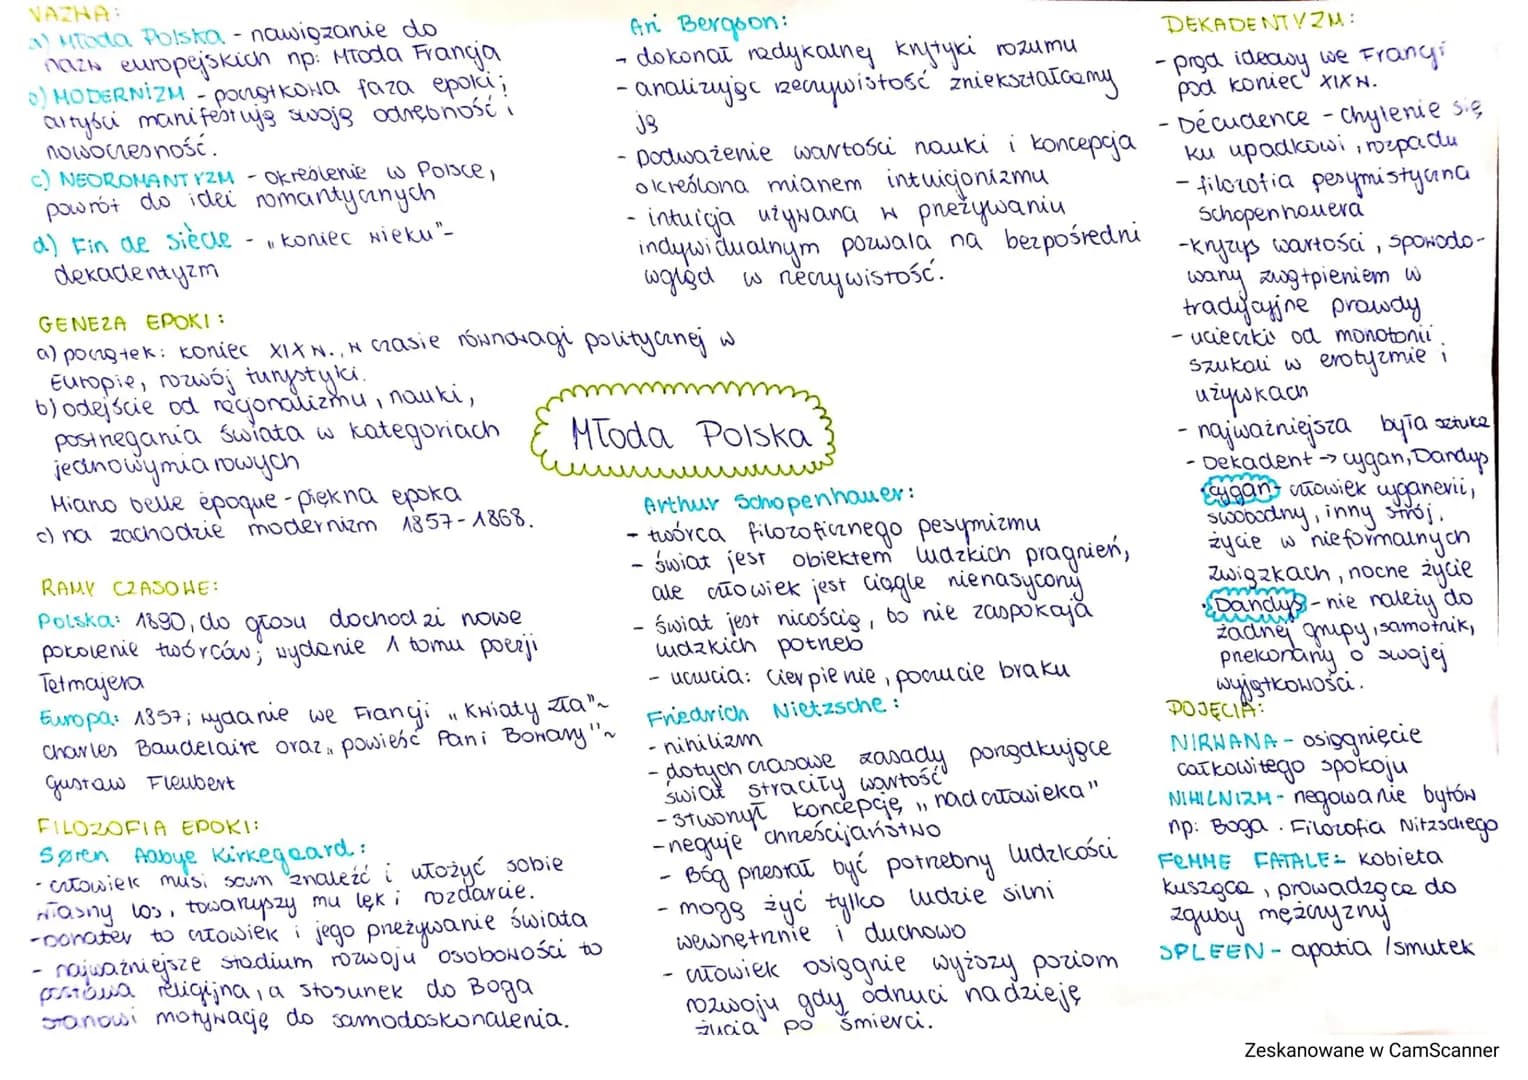 WAŻNA:
a) Młoda Polska - nawiązanie do
nazw europejskich np: Młoda Francja
b) MODERNIZM - początkowa faza epoki;
artyści manifestują swoją odrębność i
nowoczesność.
c) NEOROMANTYZM - określenie w Polsce,
powrót do idei romantycznych
d) Fin de siècle - „koniec wieku"-
dekadentyzm
GENEZA EPOKI:
a) początek: koniec XIX w., w czasie równowagi politycznej w
Europie, rozwój turystyki.
b) odejście od regionalizmu, nauki,
postrzegania świata w kategoriach
jednowymiarowych
Miano belle époque - piękna epoka
c) na zachodzie modernizm 1857-1868.
RAMY CZASOWE:
Polska: 1890, do głosu dochodzi nowe
pokolenie twórców; wydanie 1 tomu poezji
Tetmajera
Europa: 1857; wydanie we Francji „Kwiaty zła"~
Charles Baudelaire oraz „powieść Pani Bovary"~
Gustaw Fleubert
FILOZOFIA EPOKI:
Søren Aabye Kirkegaard:
- człowiek musi sam znaleźć i ułożyć sobie
własny los, towarzyszy mu lęk i rozdarcie.
- bohater to człowiek i jego przeżywanie świata
- najważniejsze stadium rozwoju osobowości to
postawa religijna, a stosunek do Boga
stanowi motywację do samodoskonalenia.
Ari Bergson:
- dokonał radykalnej krytyki rozumu
- analizując rzeczywistość zniekształcamy
ją
- podważenie wartości nauki i koncepcja
określona mianem intuicjonizmu
- intuicja używana w przeżywaniu
indywidualnym pozwala na bezpośredni
wgląd w rzeczywistość.
Młoda Polska
Arthur Schopenhauer:
- twórca filozoficznego pesymizmu
- świat jest obiektem ludzkich pragnień,
ale człowiek jest ciągle nienasycony
- świat jest nicością, bo nie zaspokaja
ludzkich potrzeb
- uczucia: cierpienie, poczucie braku
Friedrich Nietzsche:
- nihilizm
- dotychczasowe zasady porządkujące
świat straciły wartość
- stworzył koncepcję „nadczłowieka"
- neguje chrześcijaństwo
- Bóg przestał być potrzebny ludzkości
- mogą żyć tylko ludzie silni
wewnętrznie i duchowo
- człowiek osiągnie wyższy poziom
rozwoju gdy odrzuci nadzieję
życia po śmierci.
DEKADENTYZM:
- prąd ideowy we Francji
pod koniec XIX w.
- Décadence - chylenie się
ku upadkowi, rozpadu
- filozofia pesymistyczna
Schopenhauera
- kryzys wartości, spowodo-
wany zwątpieniem w
tradycyjne prawdy
- ucieczki od monotonii
szukali w erotyzmie i
używkach
- najważniejsza była sztuka
- Dekadent → cygan, Dandys
• cygan - człowiek cyganerii,
swobodny, inny strój,
życie w nieformalnych
związkach, nocne życie
• Dandys - nie należy do
żadnej grupy, samotnik,
przekonany o swojej
wyjątkowości.
POJĘCIA:
NIRWANA - osiągnięcie
całkowitego spokoju
NIHILNIZM - negowanie bytów
np: Boga. Filozofia Nitzschego
FEMME FATALE - kobieta
kusząca, prowadząca do
zguby mężczyzny
SPLEEN - apatia / smutek
Zeskanowane w CamScanner